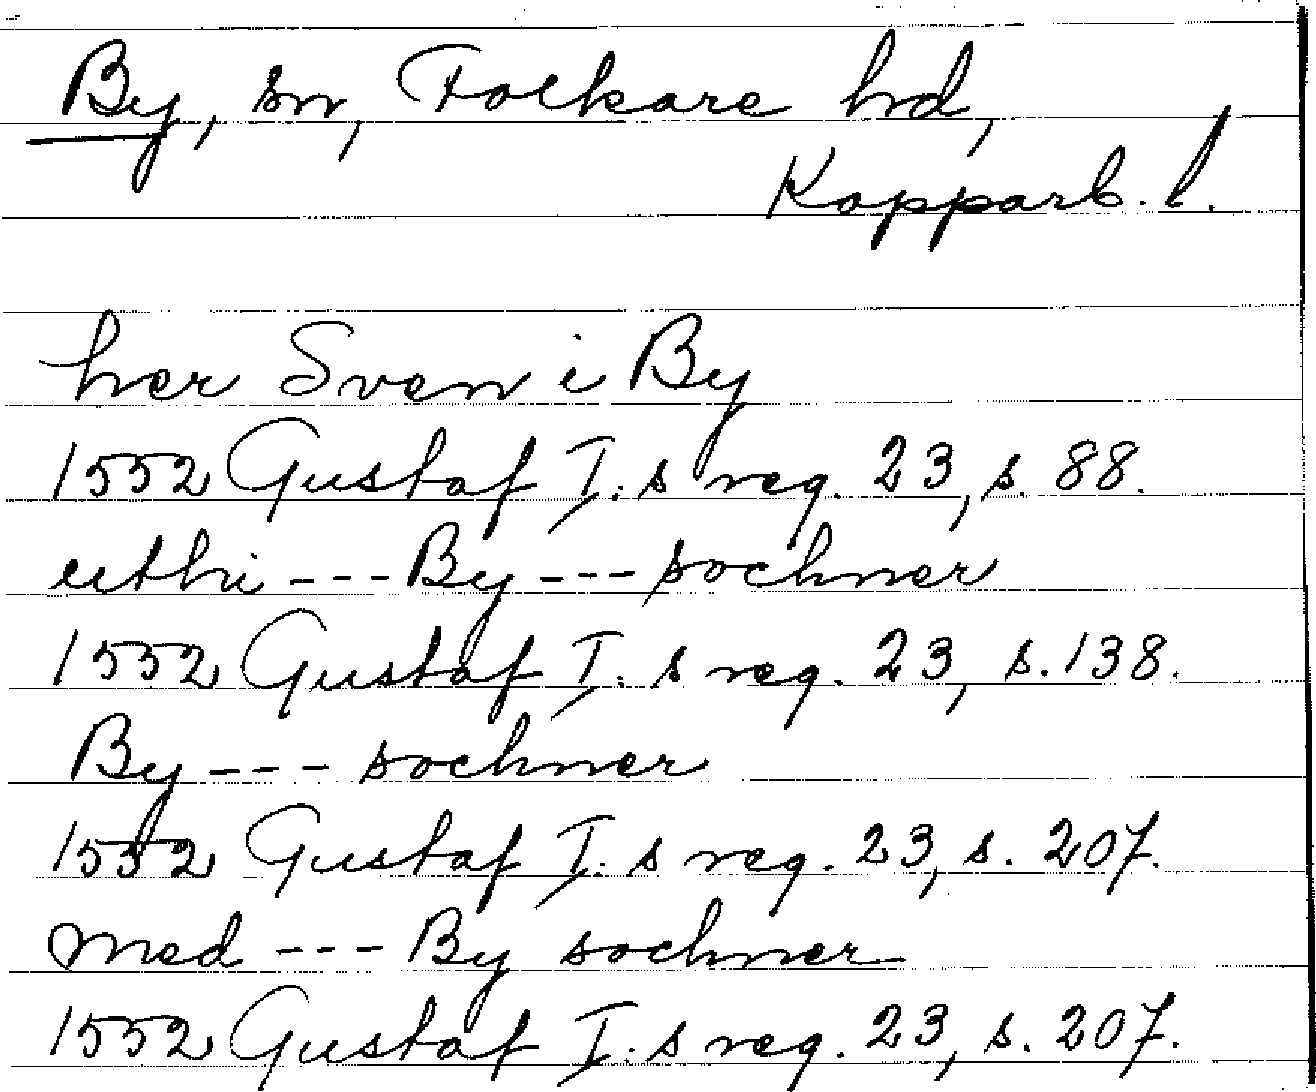 By, sn, Folkare hd,
Kopparb. l.
her Sven i By
1552 Gustaf I:s reg. 23, s. 88.
uthi --- By --- sochner
1552 Gustaf I:s reg. 23, s. 138.
By --- sochner
1552 Gustaf I:s reg. 23, s. 207.
med --- By sochner
1552 Gustaf I:s reg. 23, s. 207.